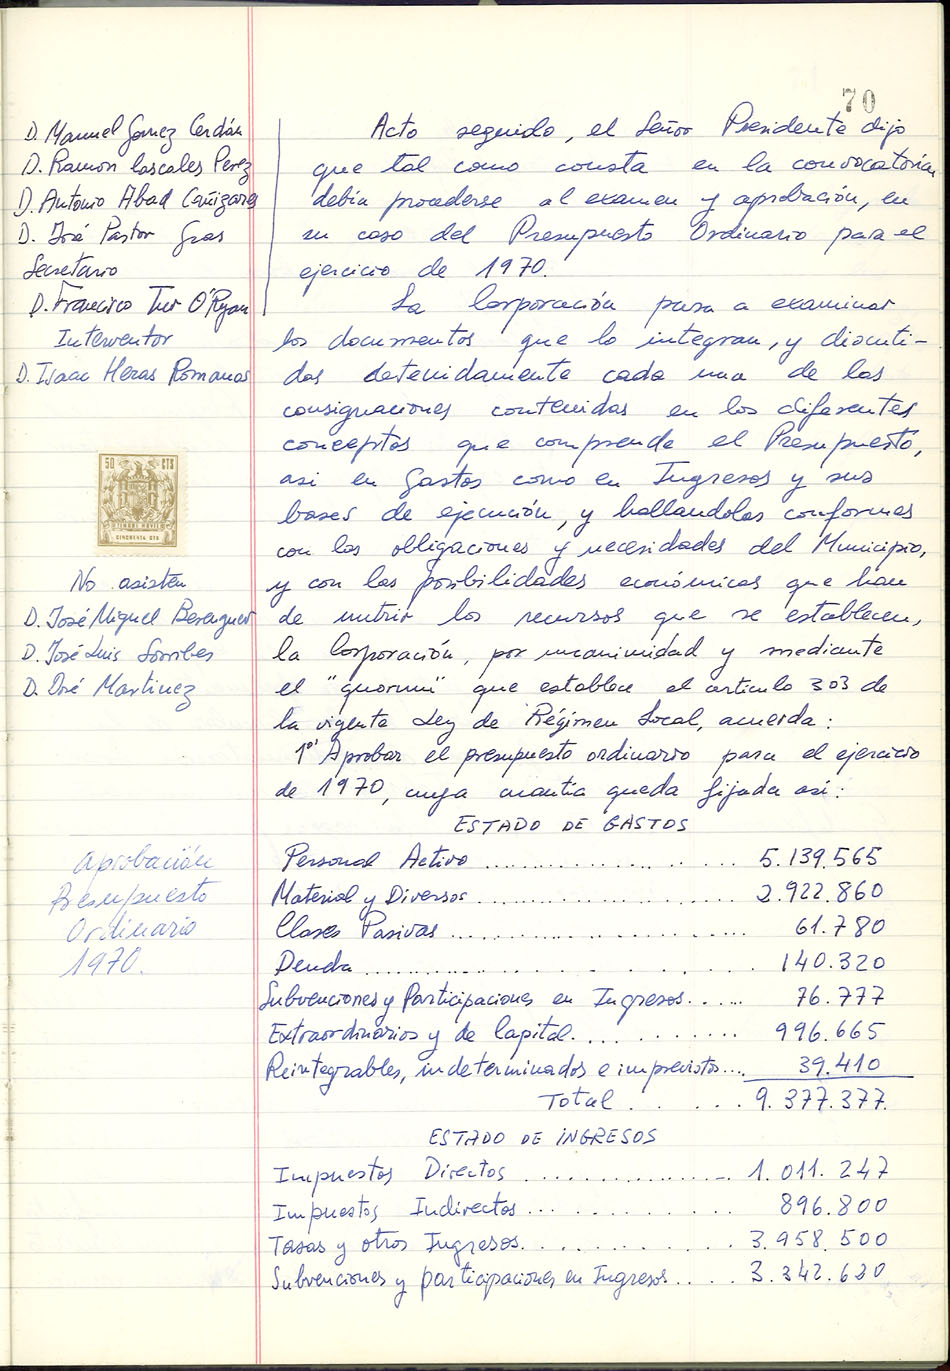 70
D. Manuel Gomez Cerdán
D. Ramon Cascales Perez
D. Antonio Abad Cañizares
D. José Pastor Gras
Secretario
D. Francisco Tur O'Ryan
Interventor
D. Isaac Heras Romanos
50 CTS
TIMBRE MOVIL
CINCUENTA CTS
No asisten
D. José Miguel Berenguer
D. José Luis Sorribes
D. José Martinez
Aprobación
Presupuesto
Ordinario
1970.
Acto seguido, el Señor Presidente dijo
que tal como consta en la convocatoria
debia procederse al examen y aprobación, en
su caso del Presupuesto Ordinario para el
ejercicio de 1970.
La Corporación pasa a examinar
los documentos que lo integran, y discuti-
das detenidamente cada una de las
consignaciones contenidas en los diferentes
conceptos que comprende el Presupuesto,
asi en Gastos como en Ingresos y sus
bases de ejecución, y hallandolas conformes
con las obligaciones y necesidades del Municipio,
y con las posibilidades económicas que han
de nutrir los recursos que se establecen,
la Corporación, por unanimidad y mediante
el "quorum" que establece el articulo 303 de
la vigente Ley de Régimen Local, acuerda:
1º Aprobar el presupuesto ordinario para el ejercicio
de 1970, cuya cuantia queda fijada asi:
ESTADO DE GASTOS
Personal Activo .................. 5.139.565
Material y Diversos .................. 2.922.860
Clases Pasivas .................. 61.780
Deuda .................. 140.320
Subvenciones y Participaciones en Ingresos...... 76.777
Extraordinarios y de Capital............ 996.665
Reintegrables, indeterminados e imprevistos.... 39.410
Total ...... 9.377.377.
ESTADO DE INGRESOS
Impuestos Directos .................. 1.011.247
Impuestos Indirectos .................. 896.800
Tasas y otros Ingresos............ 3.958.500
Subvenciones y participaciones en Ingresos...... 3.342.630